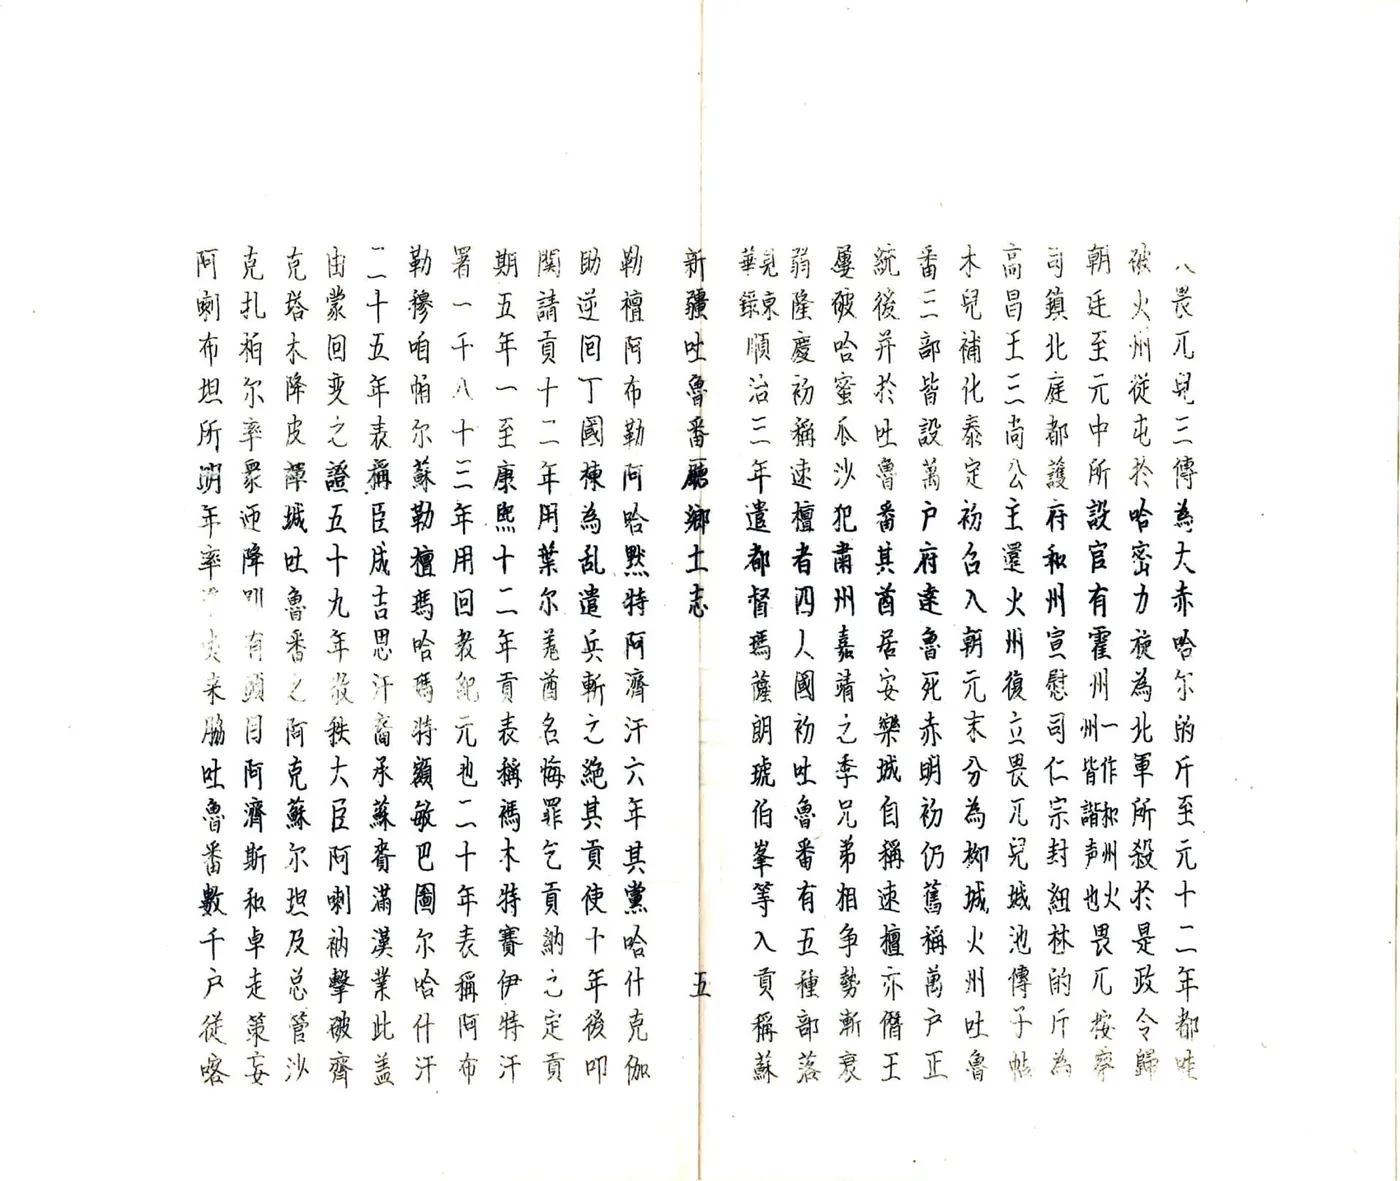 八畏兀兒三傳為大赤哈尔的斤至元十二年都哇
被火州従屯於哈密力旋為北軍所殺於是政令歸
朝廷至元中所設官有霍州一作和州火州皆諧声也畏兀按察
司鎮北庭都護府和州宣慰司仁宗封紐林的斤為
高昌王三尚公主還火州復立畏兀兒城池傳子帖
木兒補化泰定初召入朝元末分為柳城火州吐魯
番三部皆設萬户府達魯死赤明初仍舊稱萬户正
統後并於吐魯番其酋居安樂城自稱速檀亦僭王
屢破哈蜜瓜沙犯肅州嘉靖之季兄弟相争勢漸衰
弱隆慶初稱速檀者四人國初吐魯番有五種部落
見東華錄順治三年遣都督瑪薩朗琥伯峯等入貢稱蘇
新疆吐魯番廳鄉土志
五
勒檀阿布勒阿哈黙特阿濟汗六年其黨哈什克伽
助逆回丁國棟為乱遣兵斬之絶其貢使十年後叩
関請貢十二年用葉尔羗酋名悔罪乞貢納之定貢
期五年一至康熙十二年貢表稱瑪木特賽伊特汗
署一千八十三年用回教紀元也二十年表稱阿布
勒穆咱帕尔蘇勒檀瑪哈瑪特額敏巴圖尔哈什汗
二十五年表稱臣成吉思汗裔承蘇賚滿漢業此盖
由蒙回变之證五十九年散秩大臣阿喇衲擊破齊
克塔木降皮禪城吐魯番之阿克蘇尔坦及总管沙
克扎柏尔率眾迎降叭有頭目阿濟斯和卓走策妄
阿喇布坦所明年率衆来脇吐魯番數千户従喀